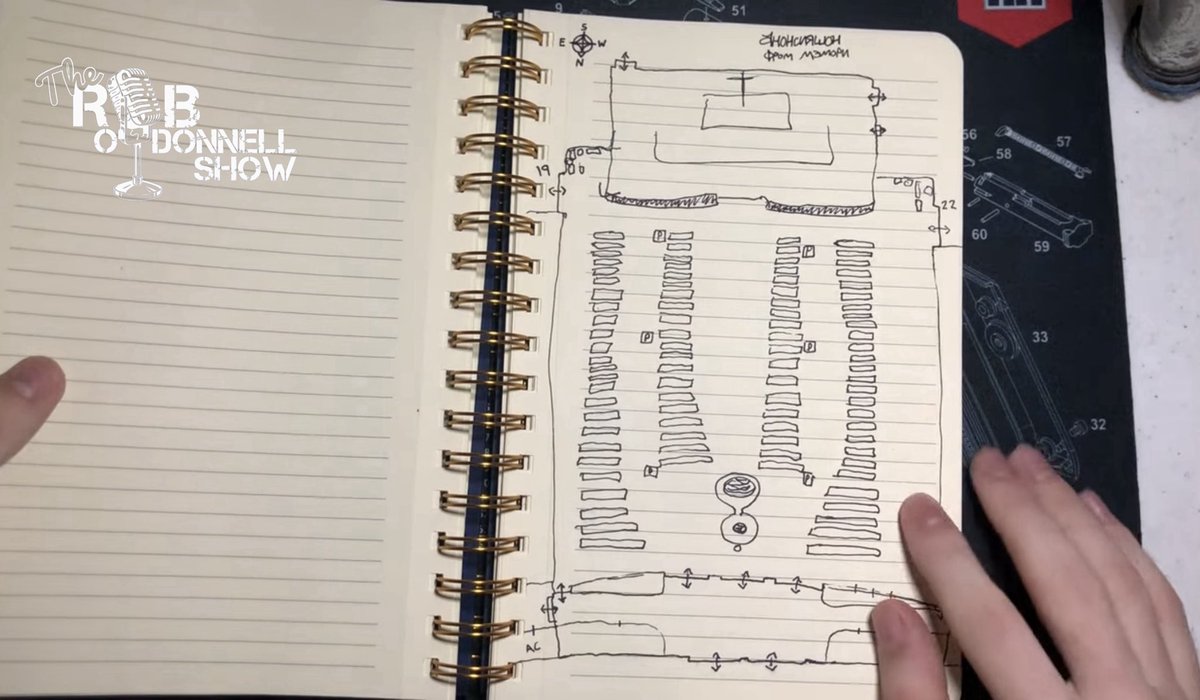 The
ROB
O'DONNELL
SHOW
9
51
S
E W
N
Анонсияшон
фром мэмори
56
57
58
19
22
60
59
P
P
P
P
33
P
P
32
AC